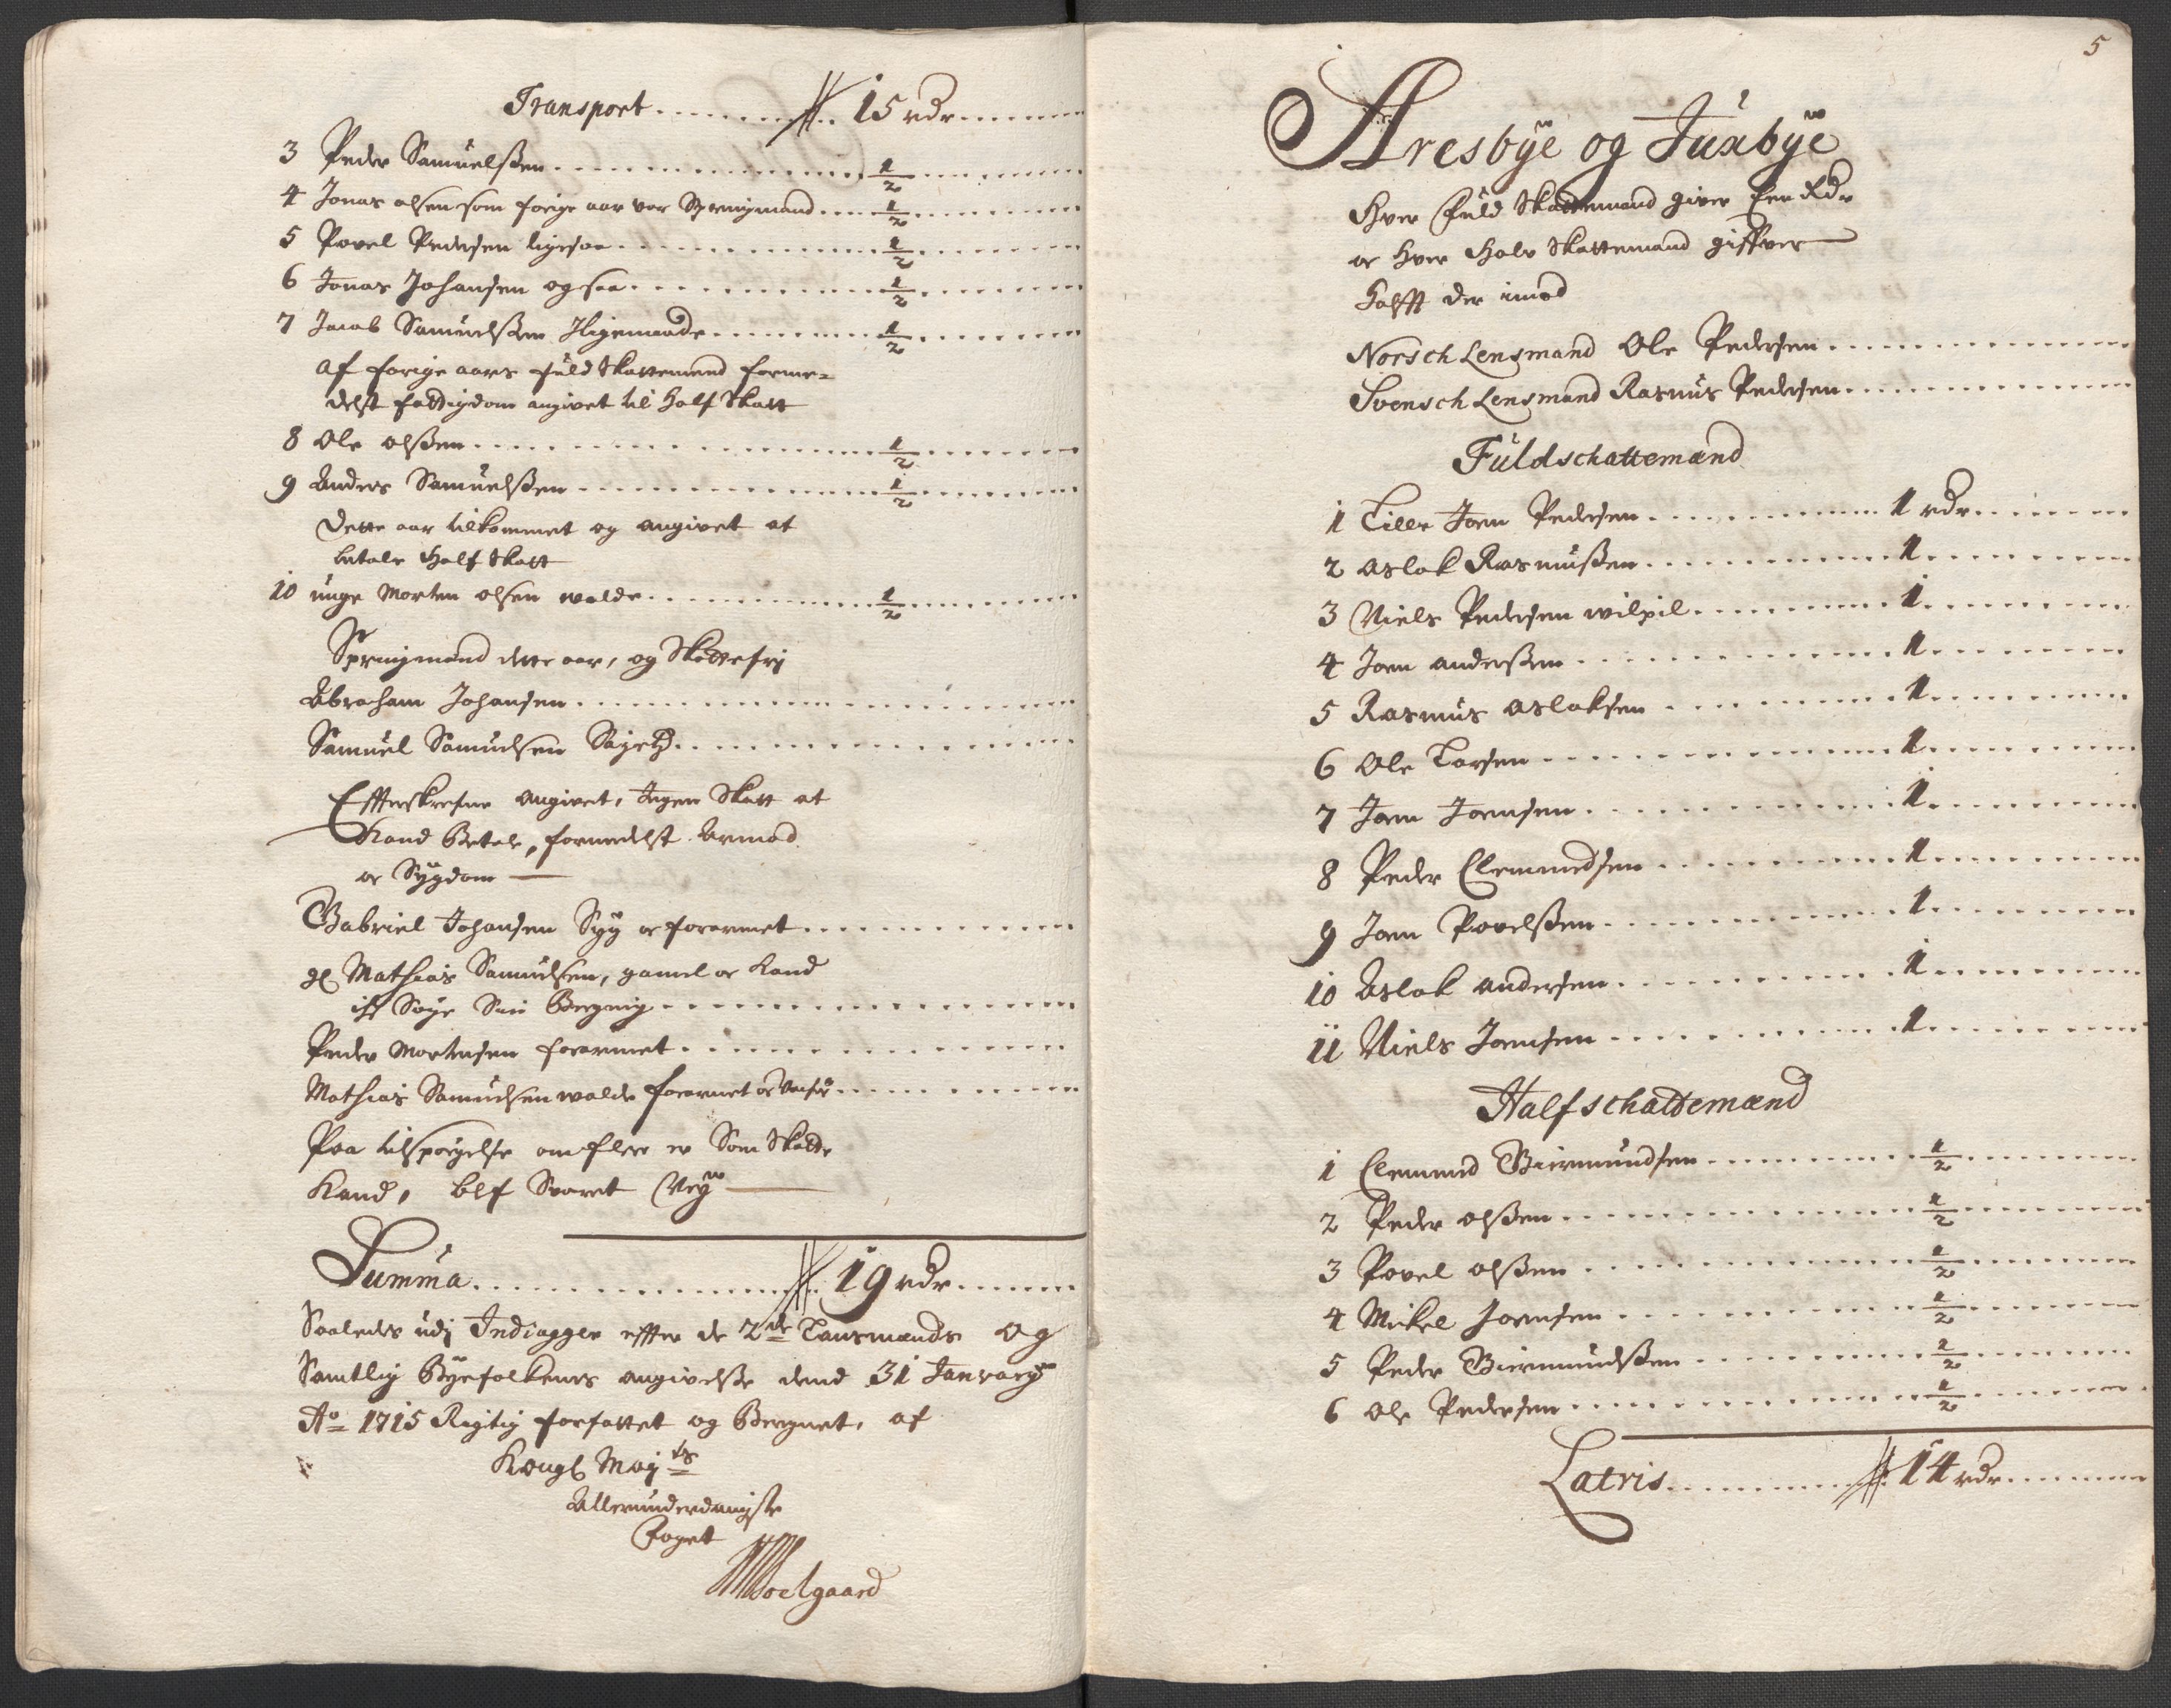 Transport ........ 15 rdr
3 Peder Samuelssen ........ 1/2
4 Jonas olsen som forige aar var Springmand .... 1/2
5 Povel Pedersen ligesaa ........ 1/2
6 Jonas Johansen og saa ........ 1/2
7 Jacob Samuelssen Iligemaade ........ 1/2
af forige aars fuld Skattemend forme=
delst fattigdom angivet til Half Skatt
8 Ole olssen ........ 1/2
9 Anders Samuelssen ........ 1/2
Dette aar tilkommet og angivet at
betale Half Skatt
10 unge Morten olsen walde ........ 1/2
Springmend dette aar, og Skattefrj
Abraham Johansen ........
Samuel Samuelsen ........
Effterskrefne angivet, Ingen Skatt at
Kand Betale, formedelst Armod
oc Sygdom
Gabriel Johansen Syg oc forarmet ........
gl Mathias Samuelsen, gamel oc Kand
iche Søge Sin Bergning ........
Peder Mortensen forarmet ........
Mathias Samuelsen walde forarmet oc ........
Paa tilspørgelse om flere er Som Skatte
Kand, blef Svaret Ney
Summa ........ 19 rdr
Saaledes udj Indiagger effter de 2de Lensmænds og
Samtlig Byefolkenes angivelsse dend 31 January
Ao 1715 Rigtig forfattet og Beregnet, af
Kongl Mayts
Allerunderdanigste
Foget
Soelgaard
5
Aresbÿe og Juxbÿe
Hver Fuld Skattemand giver Een Rdr
oc Hver Halv Skattemand giffver
Halfft der imod
Norsch Lensmand Ole Pedersen ........
Svensch Lensmand Rasmus Pedersen ........
Fuldschattemænd
1 Lille Joen Pedersen ........ 1 rdr
2 Aslak Rasmussen ........ 1
3 Niels Pedersen wilpil ........ 1
4 Joen anderssen ........ 1
5 Rasmus Aslaksen ........ 1
6 Ole Larsen ........ 1
7 Joen Joensen ........ 1
8 Peder Clemmedsen ........ 1
9 Joen Povelssen ........ 1
10 Aslak andersen ........ 1
11 Niels Joensen ........ 1
Halfschattemænd
1 Clemmed Guermundsen ........ 1/2
2 Peder olssen ........ 1/2
3 Povel olssen ........ 1/2
4 Mikel Joensen ........ 1/2
5 Peder Guermundssen ........ 1/2
6 Ole Pedersen ........ 1/2
Latris ........ 14 rdr